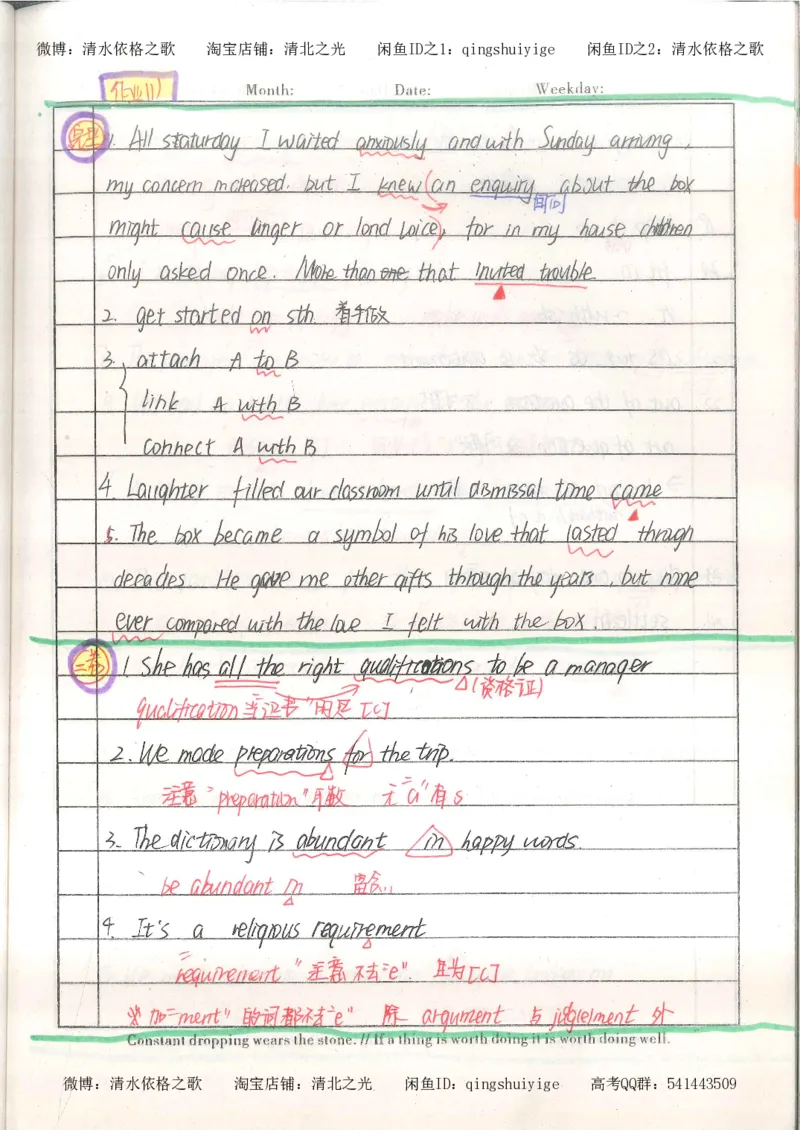 微博：清水依格之歌 淘宝店铺：清北之光 闲鱼ID之1：qingshuiyige 闲鱼ID之2：清水依格之歌
作业11 Month: Date: Weekday:
完型 1. All staturday I waited anxiously and with Sunday arriving,
my concern increased. but I knew (an enquiry about the box
询问
might cause anger or loud voice), for in my house children
only asked once. More than one, that invited trouble.
2. get started on sth. 着手做
3. attach A to B
link A with B
connect A with B
4. Laughter filled our classroom until dismissal time came
5. The box became a symbol of his love that lasted through
decades. He gave me other gifts through the years, but none
ever compared with the love I felt with the box.
二卷 1. She has all the right qualifications to be a manager
(资格证)
qualification 当"证书"用是 [C]
2. We made preparations for the trip.
注意 "preparation" 可数 无"a"有s
3. The dictionary is abundant in happy words.
be abundant in 富含
4. It's a religious requirement
requirement "注意不去"e". 且为[C]
※ 加"ment"的词都不去"e" 除 argument 与 judgement 外
Constant dropping wears the stone. // If a thing is worth doing it is worth doing well.
微博：清水依格之歌 淘宝店铺：清北之光 闲鱼ID：qingshuiyige 高考QQ群：541443509